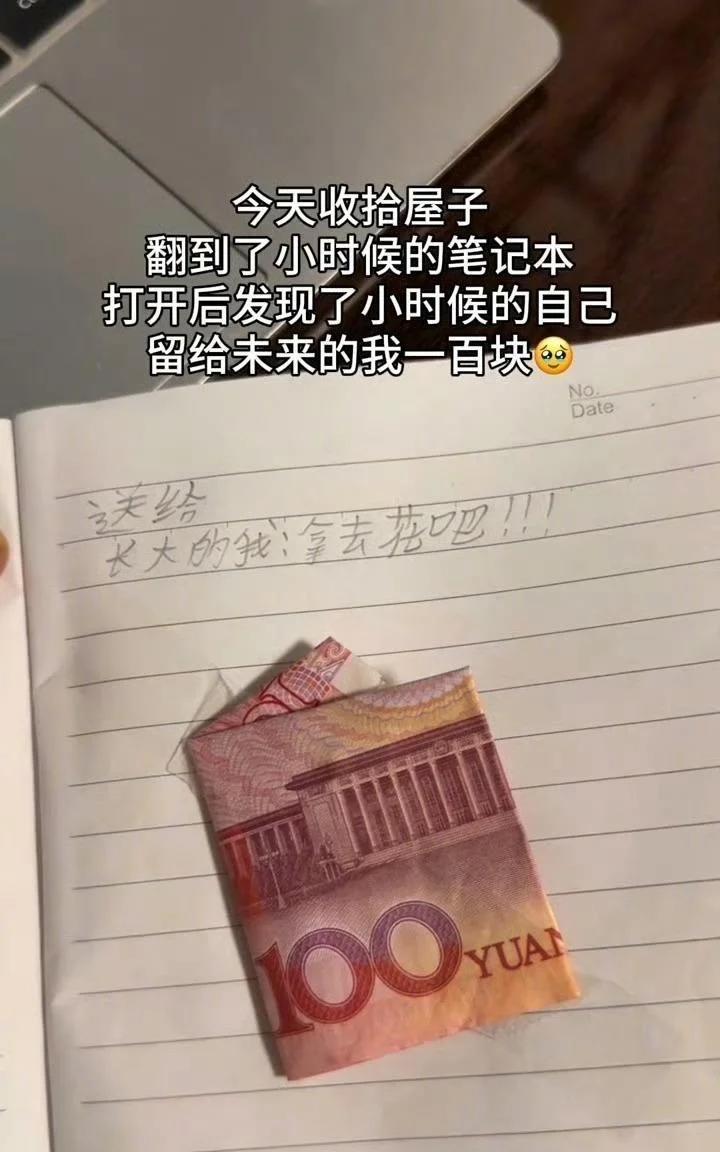 今天收拾屋子
翻到了小时候的笔记本
打开后发现了小时候的自己
留给未来的我一百块🥹
No.
Date
送给
长大的我:拿去花吧!!!
100 YUAN